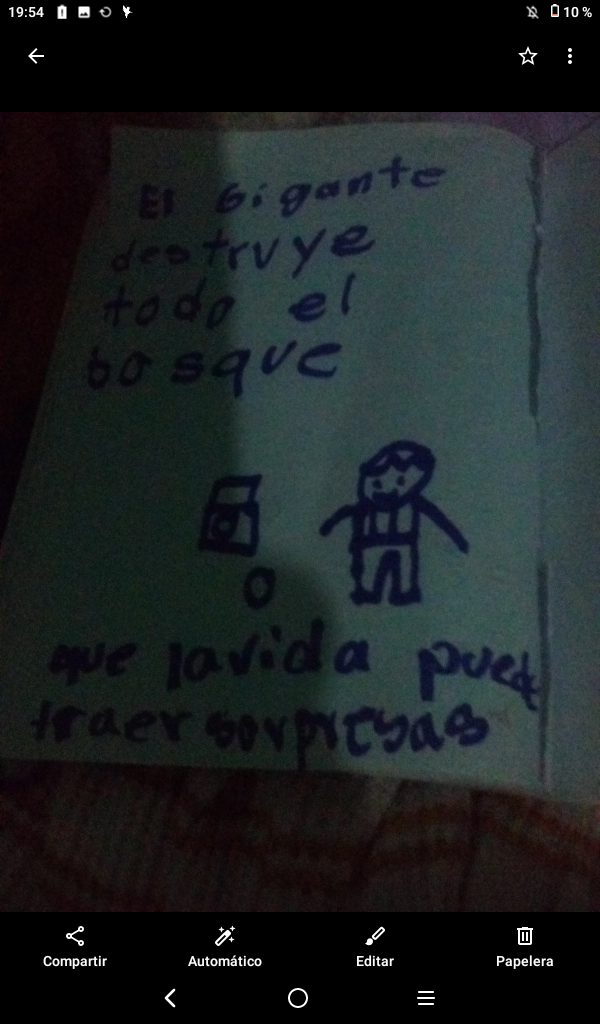 19:54
10 %
El Gigante
destruye
todo el
bosque
que la vida puede
traer sorpresas
Compartir Automático Editar Papelera